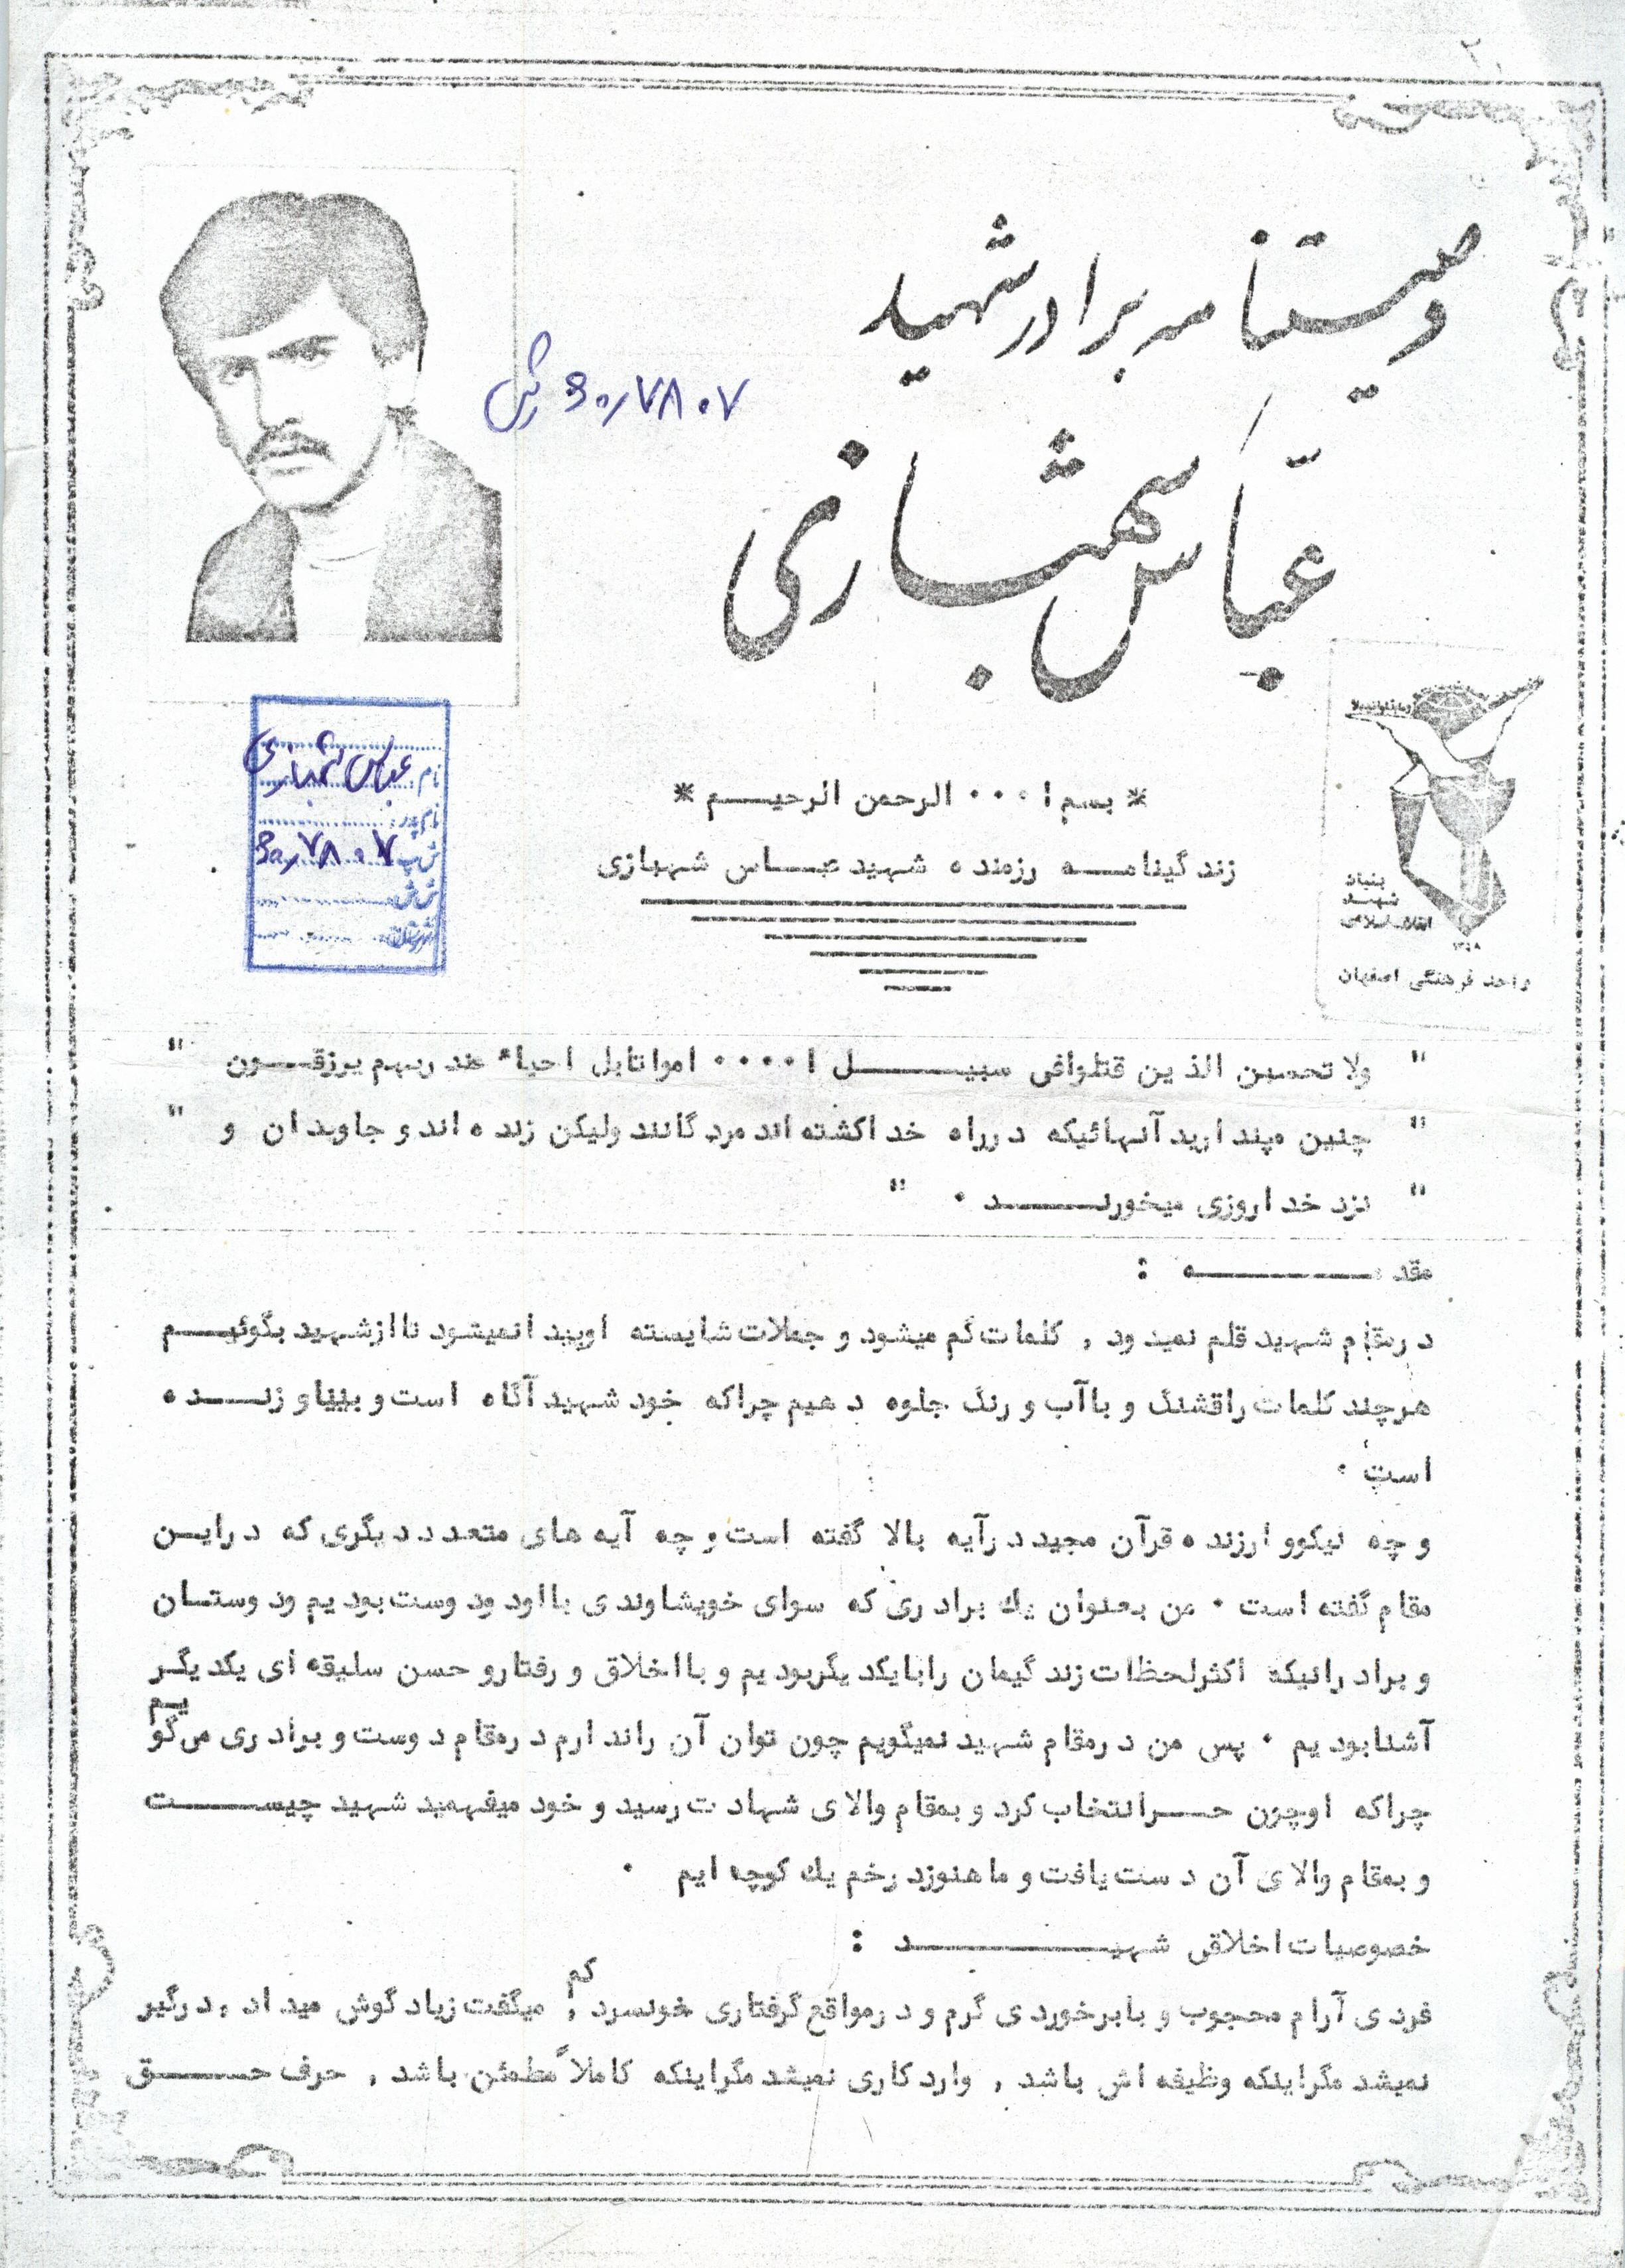 وصیتنامه برادر شهید
عباس شهبازی
* بسم ا . . . الرحمن الرحیم *
زندگینامه رزمنده شهید عباس شهبازی
نام: عباس شهبازی
نام پدر:
ش پ
ش ش
شهرستان
بنیاد
شهید
انقلاب اسلامی
واحد فرهنگی اصفهان
" ولا تحسبن الذین قتلوافی سبیل ا . . . . امواتابل احیاء عند ربهم یرزقون "
" چنین مپندارید آنهائیکه درراه خداکشته اند مردگانند ولیکن زنده اند و جاویدان و "
" نزد خداروزی میخورند . "
مقدمه :
درمقام شهید قلم نمیدود , کلمات گم میشود و جملات شایسته اوپیدانمیشود تاازشهید بگوئیم
هرچند کلمات راقشنگ و باآب و رنگ جلوه دهیم چراکه خود شهید آگاه است و بیناو زنده
است .
و چه نیکوو ارزنده قرآن مجید درآیه بالا گفته است و چه آیه های متعدد دیگری که دراین
مقام گفته است . من بعنوان یك برادری که سوای خویشاوندی بااودو دوست بودیم ودوستان
و برادرانیکه اکثرلحظات زندگیمان رابایکدیگربودیم و بااخلاق و رفتارو حسن سلیقه ای یکدیگر
آشنابودیم . پس من درمقام شهید نمیگویم چون توان آن راندارم درمقام دوست و برادری می‌گویم
چراکه اوچون حرانتخاب کرد و بمقام والای شهادت رسید و خود میفهمید شهید چیست
و بمقام والای آن دست یافت و ماهنوزدرخم یك کوچه ایم .
خصوصیات اخلاقی شهید :
فردی آرام محجوب و بابرخوردی گرم و درمواقع گرفتاری خونسرد , کم میگفت زیاد گوش میداد , درگیر
نمیشد مگراینکه وظیفه اش باشد , واردکاری نمیشد مگراینکه کاملاً مطمئن باشد , حرف حق